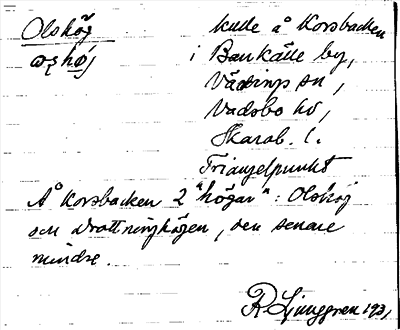 Olshög kulle å Korsbacken
i Bankälle by,
Väsings sn,
Vadsbo hd,
Skarab. l.
Triangelpunkt
Å Korsbacken 2 "högar": Olshög
och Drottninghögen, den senare
mindre.
R Ljunggren 1931